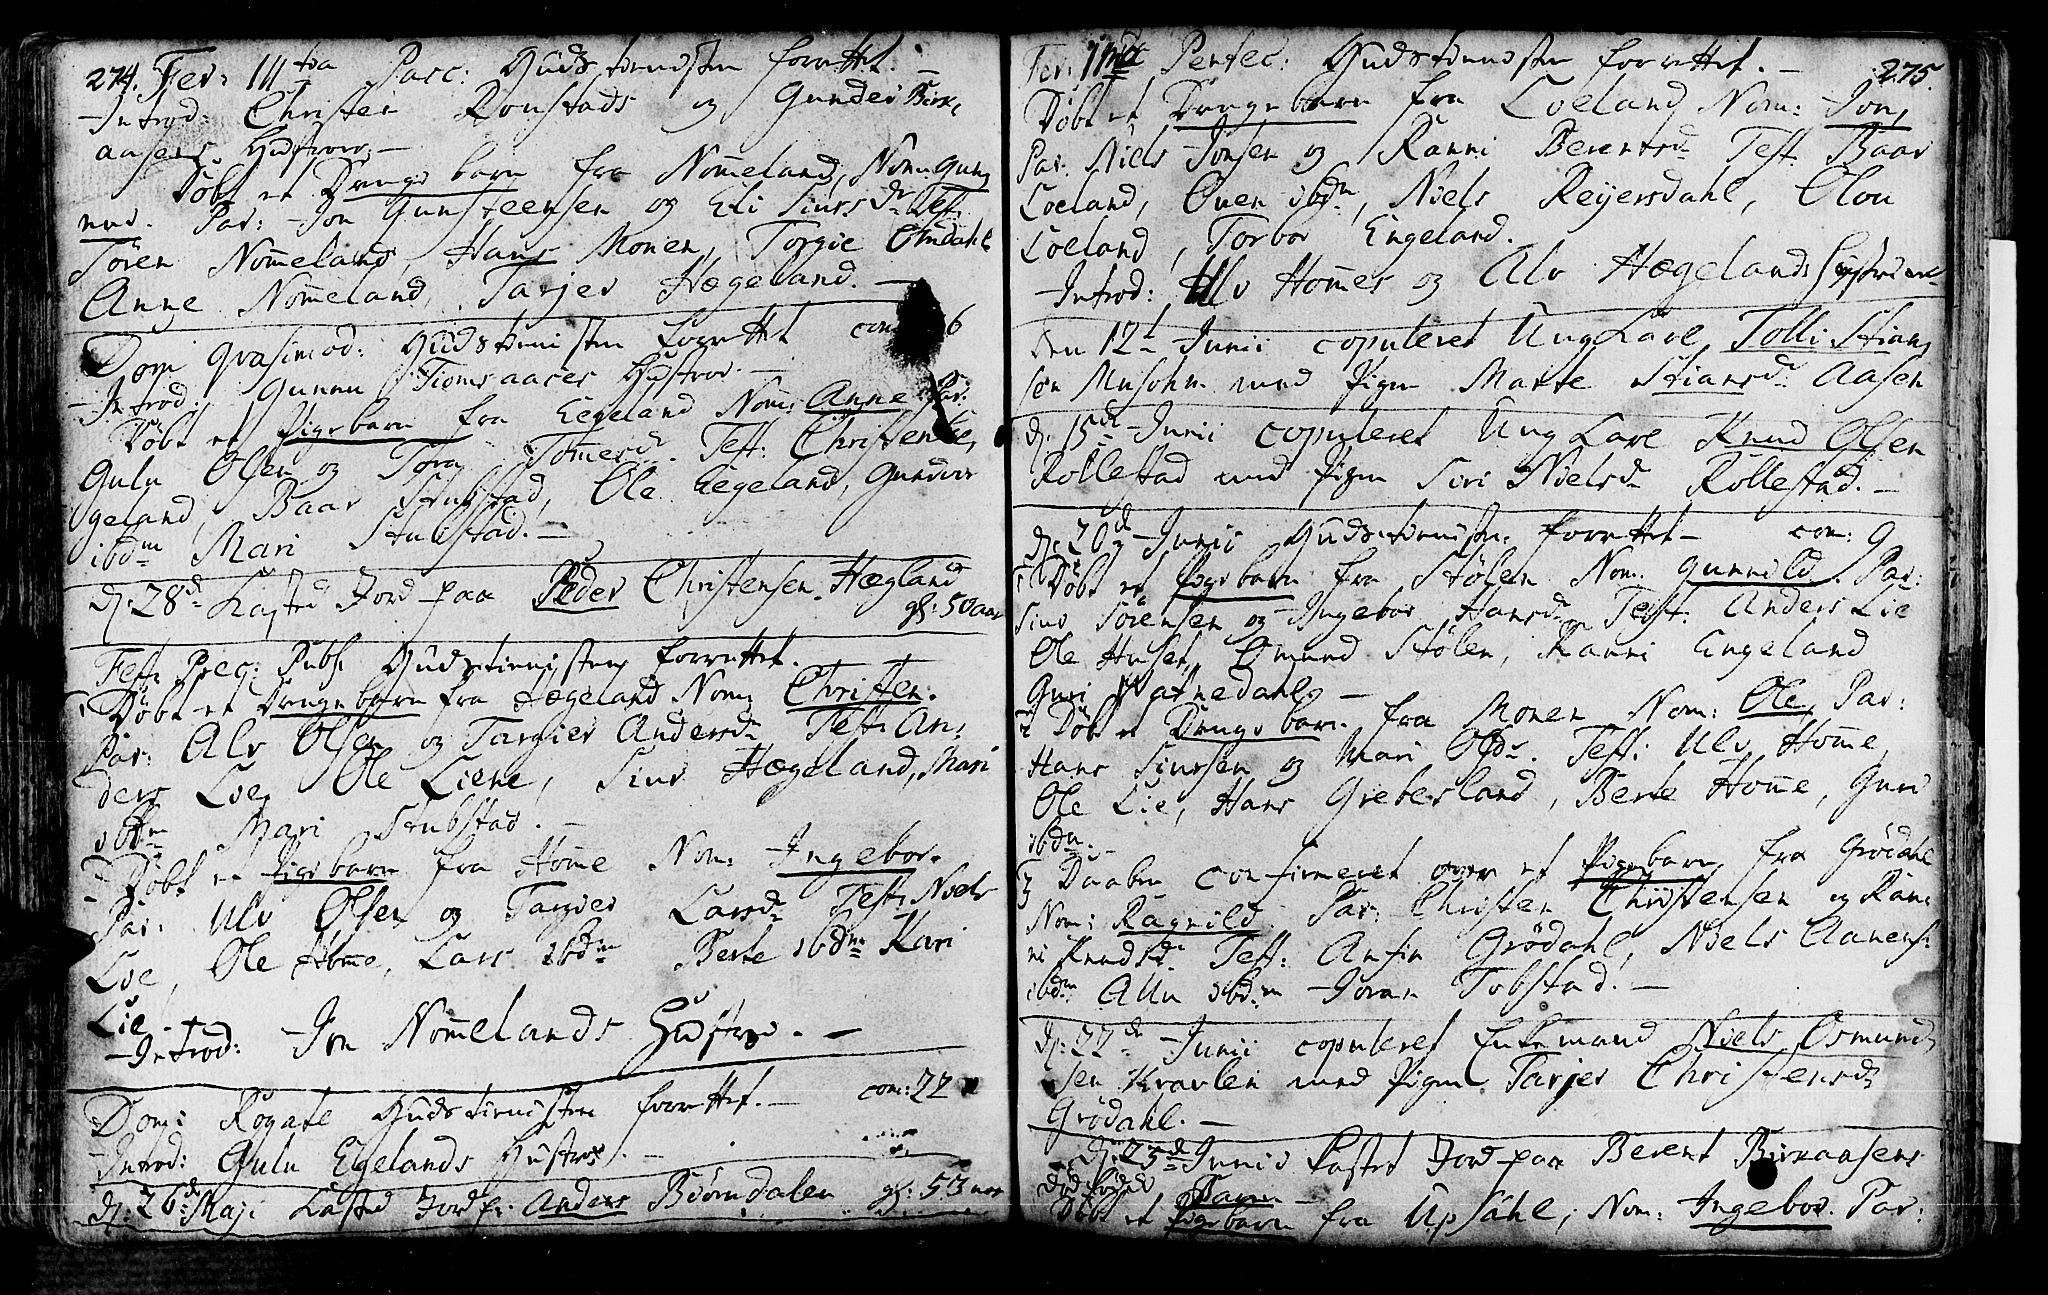 274. Fer: III tia Pasc: Gudstienesten forrettet. —
-Introd: Christen Ronstads og Gunder Birk,
aasens Hustruer. —
Døbt et Drengebarn fra Nomeland, Nom: Gun,
nud. Par: Jon Gunsteensen og Eli Siursdr Test:
Sören Nomeland, Hans Monen, Torgie Omdahl
Anne Nomeland, Tarjer Hægeland. —
Dom qvasimod: Gudstienisten forrettet con: 6
-Introd: Gunnu Tiomsaases Hustroe. —
Døbt et Pigebarn fra Eegeland Nom: Anne Par:
Gulu Olsen og Tora Tomesd. Test: Christen Ee,
geland, Baar Stubstad, Ole Eegeland, Gundvor
ibdm Mari Stubstad. —
d. 28de Kasted Jord paa Peder Christensen Hægland
gl: 50 aar
Fest. Preg: Publ: Gudstienisten forrettet.
1 Døbt et Drengebarn fra Hægeland Nom: Christen.
Par: Alv Olsen og Targier Andersdr Test: An,
ders Loe, Ole Liene, Siur Hægeland, Mari
ibdm Mari Stubstad. —
2 Døbt et Pigebarn fra Home. Nom: Ingebor.
Par: Ulv Olsen og Targier Larsdr Test: Niels
Loe, Ole Home, Lars ibdm Berte ibdm Kari
Lie. —
-Introd: Jon Nomelands Hustroe. —
Dom: Rogate Gudstienisten forrettet. — con: 22
-Introd: Gulu Egelands Hustroe. —
d. 26de Maji Kasted Jord p: Anders Biörndalen gl: 53 aar
Fer: IIda Pentec: Gudstienesten forrettet. — 275.
Døbt et Drengebarn fra Loeland Nom: Jon,
Par: Niels Jonsen og Ranni Berentsdr Test Baar
Loeland, Oven ibdm, Niels Reyersdahl, Olou
Loeland, Torbor Engeland.
-Introd: Ulv Homes og Alv Hægelands Hustruer
Den 12t Junii copuleret Ung Karl Tolli Stian,
sen Musohm med Pigen Marte Stiansdr Aasen
d. 15de Junii copuleret Ung Karl Knud Olsen
Röllestad med Pigen Siri Nielsdr Röllestad. —
d. 20de Junii Gudstieniste forrettet — con: 9
1 Døbt et Pigebarn fra Stölen Nom. Gunnild. Par:
Siur Sörensen og Ingebor Hansdr Test: Anders Lie
Ole Huset, Omund Stölen, Ranni Engeland
Guri Vatnedahl —
2 Døbt et Drengebarn fra Monen Nom: Ole, Par:
Hans Siursen og Mari Olsdr. Test: Ulv Home,
Ole Lie, Hans Grebesland, Berte Home, Guri
ibdm. —
3 Daaben confirmeret over et Pigebarn fra Grödahl
Nom: Ragnild. Par: Christen Christensen og Ran,
ni Knudsdr. Test: Anfin Grödahl, Niels Aanens
ibdm Allu ibdm Joran Tobstad. —
d. 22de Junii copuleret Enkemand Niels Osmund,
sen Kravlen med Pigen Tarjer Christensdr
Grödahl. —
d. 25de Junii Kasted Jord paa Berent Birkaasens
dødfødde Barn
Døbt et Pigebarn fra Upsahl, Nom: Ingebor. Par: